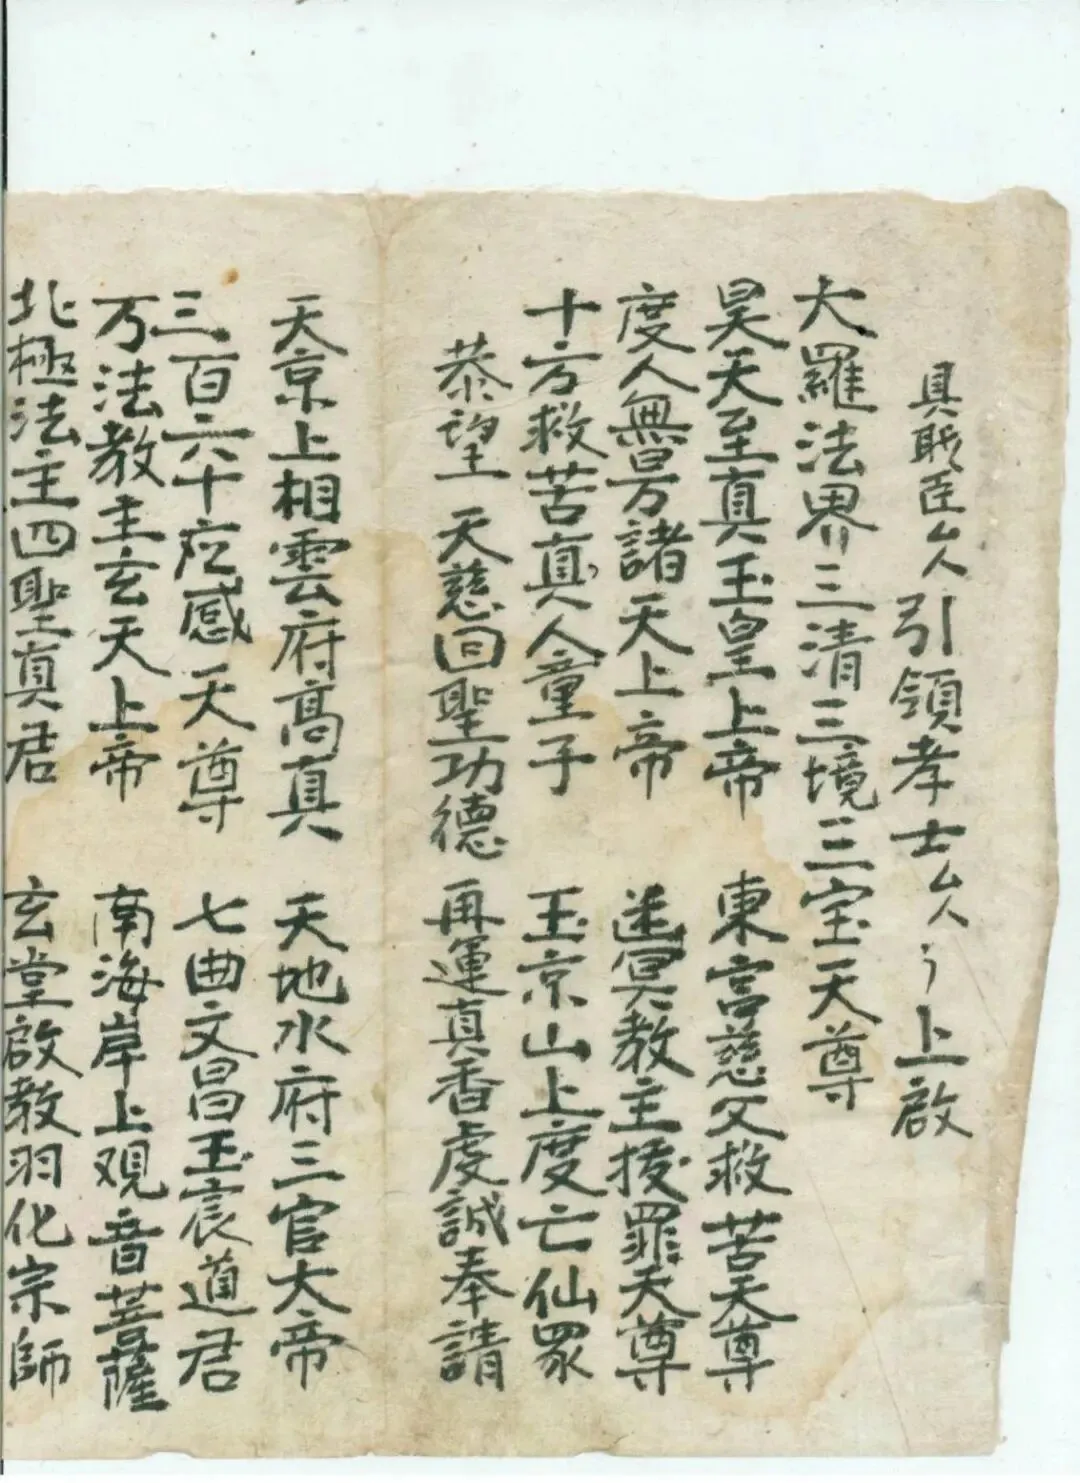 具職臣厶人引領孝士厶人, 上啟
大羅法界三清三境三宝天尊
昊天至真玉皇上帝 東宮慈父救苦天尊
度人無量諸天上帝 迷冥教主拔罪天尊
十方救苦真人童子 玉京山上度亡仙眾
恭望 天慈回聖功德 再運真香虔誠奉請
天京上相雲府高真 天地水府三官大帝
三百六十应感天尊 七曲文昌玉宸道君
万法教主玄天上帝 南海岸上观音菩薩
北極法主四聖真君 玄堂啟教羽化宗師